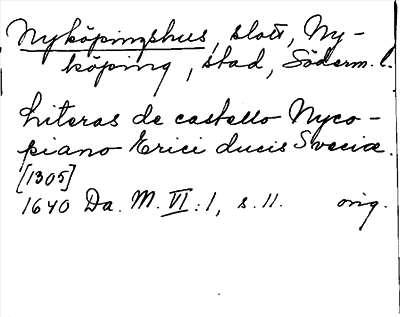 Nyköpingshus, slott, Ny-
köping, stad, Söderm. l.
Literas de castello Nyco-
piano Erici ducis Sveciæ.
[1305]
1640 Da. M. VI:1, s. 11. orig.